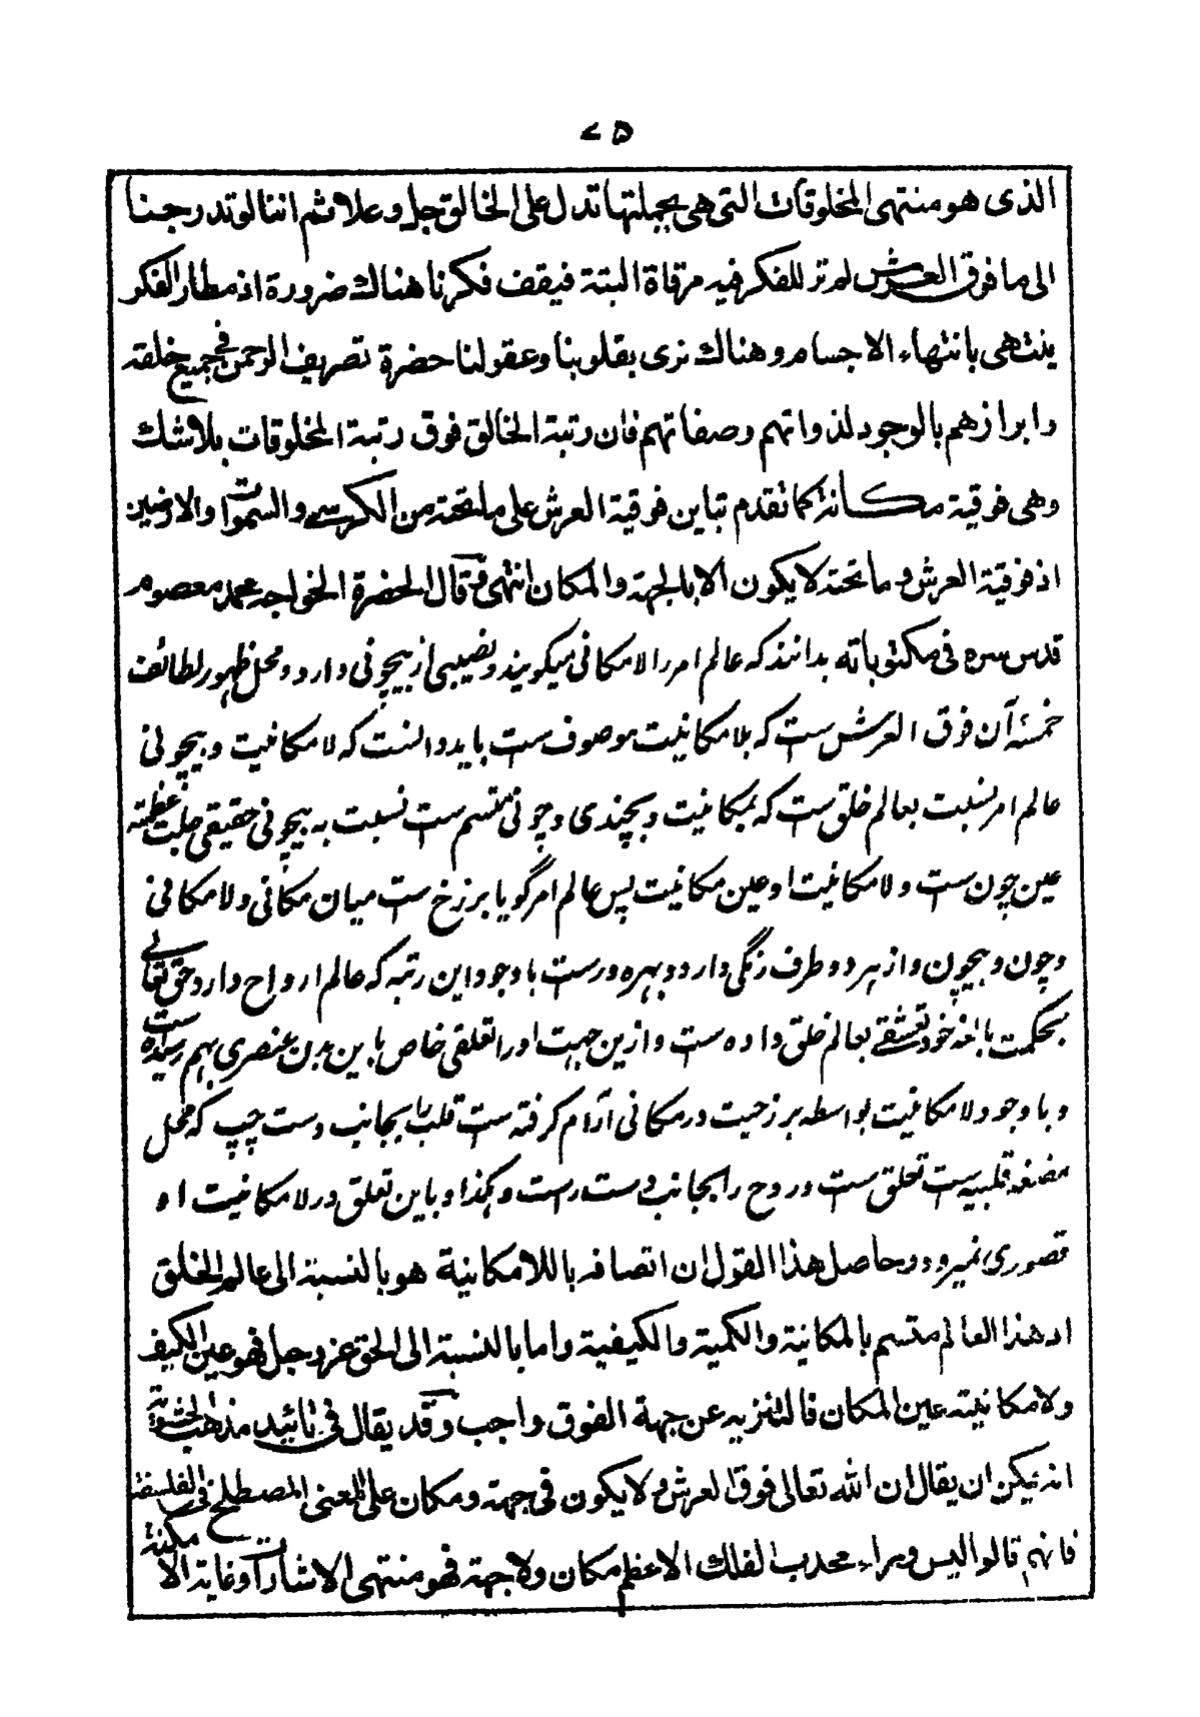 ٧٥
الذی هو منتهی المخلوقات التی هی بجملتها تدل علی الخالق جل و علا ثم اننا لو تدرجنا
الی ما فوق العرش لم تر للفکر فیه مرقاة البتة فیقف فکرنا هناك ضرورة اذ مطار الفکر
ینتهی بانتهاء الاجسام و هناك نری بقلوبنا و عقولنا حضرة تصریف الرحمن فی جمیع خلقه
و ابرازهم بالوجود لذواتهم و صفاتهم فان رتبة الخالق فوق رتبة المخلوقات بلاشك
وهی فوقیة مکانة کما تقدم تباین فوقیة العرش علی ما تحته من الکرسے و السموات و الارضین
اذ فوقیة العرش و ما تحته لا یکون الا بالجهة و المکان انتهی و قال الحضرة الخواجه محمد معصوم
قدس سره فی مکتوباته بدانند که عالم امر را لا مکانی میگویند و نصیبی از بیچونی دارد و محل ظهور لطائف
خمسهٔ آن فوق العرش ست که بلا مکانیت موصوف ست باید دانست که لا مکانیت و بیچونی
عالم امر نسبت بعالم خلق ست که بمکانیت و بچندی و چونی متسم ست نسبت به بیچونی حقیقی جلت عظمته
عین چون ست و لا مکانیت او عین مکانیت پس عالم امر گویا برزخ ست میان مکانی و لا مکانی
و چون و بیچون و از هر دو طرف رنگی دارد و بهره ورست با وجود این رتبه که عالم ارواح دارد حق تعالی
بحکمت بالغه خود تعشقے بعالم خلق داده ست و ازین جهت او را تعلقی خاص باین بدن عنصری بهم رسیده ست
و با وجود لا مکانیت بواسطه برزخیت در مکانی آرام گرفته ست قلب را بجانب دست چپ که محل
مضغه قلبیه ست تعلق ست و روح را بجانب دست راست و هکذا و باین تعلق در لا مکانیت او
قصوری نمیرود و حاصل هذا القول ان اتصافه باللا مکانیة هو بالنسبة الی عالم الخلق
اذ هذا العالم متسم بالمکانیة و الکمیة و الکیفیة و اما بالنسبة الی الحق عز و جل فهو عین الکیف
و لا مکانیته عین المکان فالتنزیه عن جهة الفوق واجب و قد یقال فی تائید مذهب الحشویة
انه یمکن ان یقال ان الله تعالی فوق العرش و لا یکون فی جهة و مکان علی المعنی المصطلح فی الفلسفة
فانهم قالوا لیس وراء محدب الفلك الاعظم مکان و لا جهة فهو منتهی الاشارات و غایة الامکنة